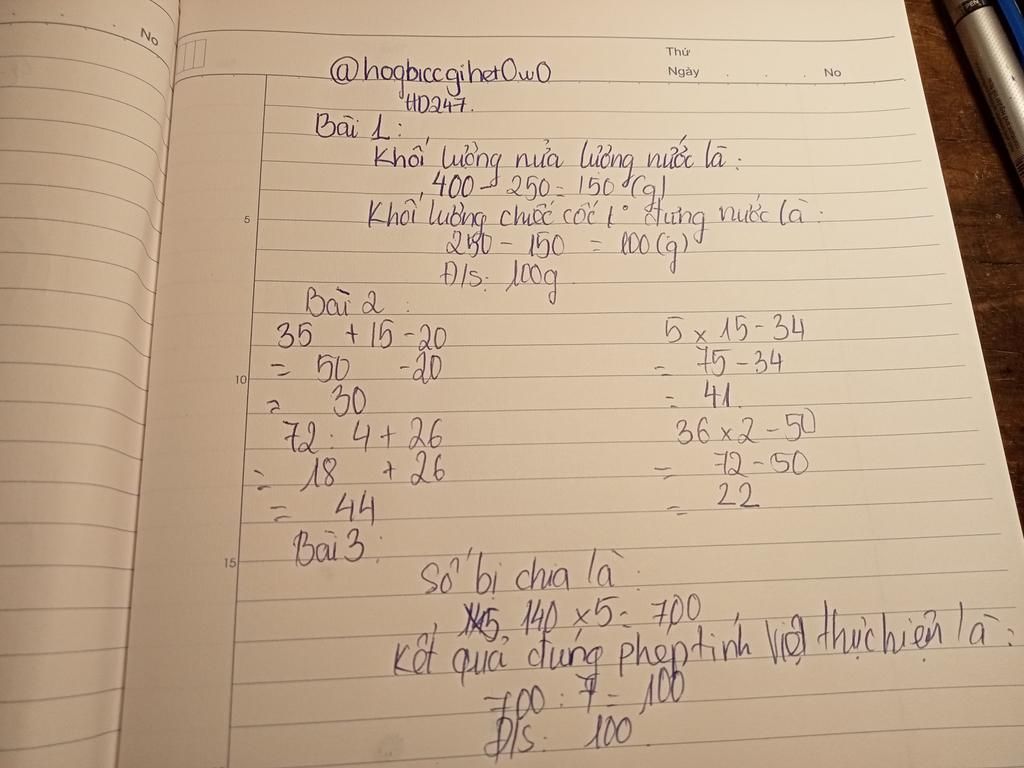 No
Thứ
Ngày . . . No
@hogbiccgihetOwO
HD247.
Bài 1:
Khối lượng nửa lượng nước là:
400 - 250 = 150 (g)
Khối lượng chiếc cốc k° đựng nước là:
250 - 150 = 100(g)
Đ/S: 100g
Bài 2:
35 + 15 - 20
5 x 15 - 34
= 50 - 20
= 75 - 34
= 30
= 41
72 : 4 + 26
36 x 2 - 50
= 18 + 26
= 72 - 50
= 44
= 22
Bài 3:
Số bị chia là:
140 x 5 = 700
Kết quả đúng phép tính Việt thực hiện là:
700 : 7 = 100
Đ/s: 100
5
10
15